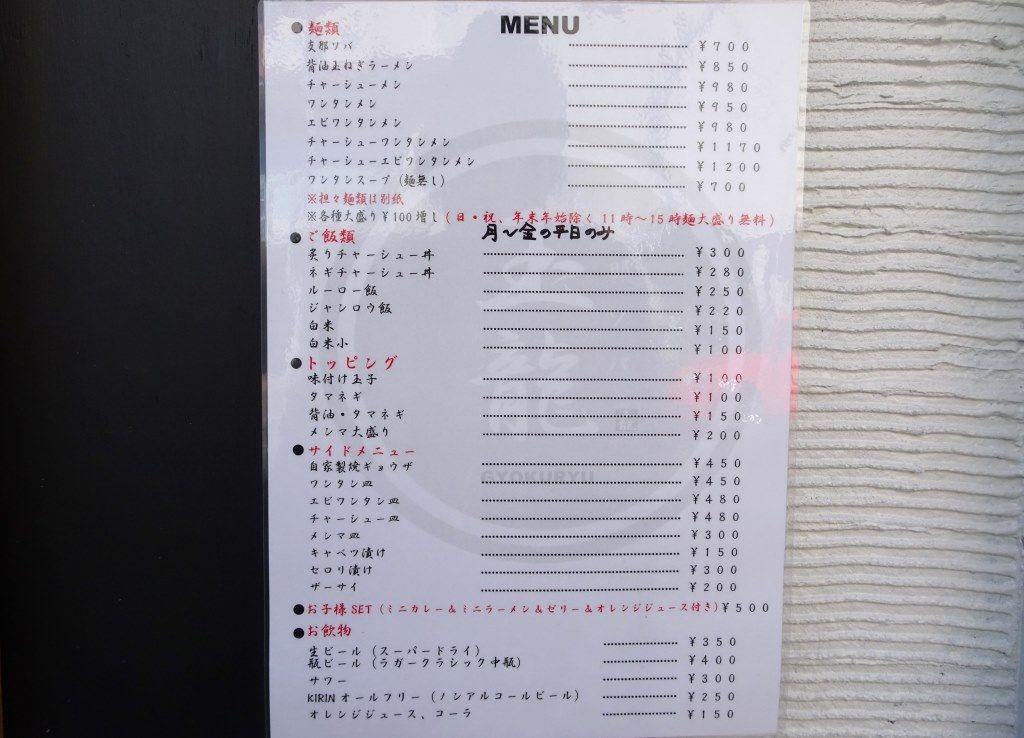 MENU
●麺類
支那ソバ ¥700
背油玉ねぎラーメン ¥850
チャーシューメン ¥980
ワンタンメン ¥950
エビワンタンメン ¥980
チャーシューワンタンメン ¥1170
チャーシューエビワンタンメン ¥1200
ワンタンスープ(麺無し) ¥700
※担々麺類は別紙
※各種大盛り¥100増し(日・祝、年末年始除く11時〜15時麺大盛り無料)
月〜金の平日のみ
●ご飯類
炙りチャーシュー丼 ¥300
ネギチャーシュー丼 ¥280
ルーロー飯 ¥250
ジャンロウ飯 ¥220
白米 ¥150
白米小 ¥100
●トッピング
味付け玉子 ¥100
タマネギ ¥100
背油・タマネギ ¥150
メンマ大盛り ¥200
●サイドメニュー
自家製焼ギョウザ ¥450
ワンタン皿 ¥450
エビワンタン皿 ¥480
チャーシュー皿 ¥480
メンマ皿 ¥300
キャベツ漬け ¥150
セロリ漬け ¥300
ザーサイ ¥200
●お子様SET(ミニカレー&ミニラーメン&ゼリー&オレンジジュース付き)¥500
●お飲物
生ビール(スーパードライ) ¥350
瓶ビール(ラガークラシック中瓶) ¥400
サワー ¥300
KIRINオールフリー(ノンアルコールビール) ¥250
オレンジジュース、コーラ ¥150
GYOKURYU